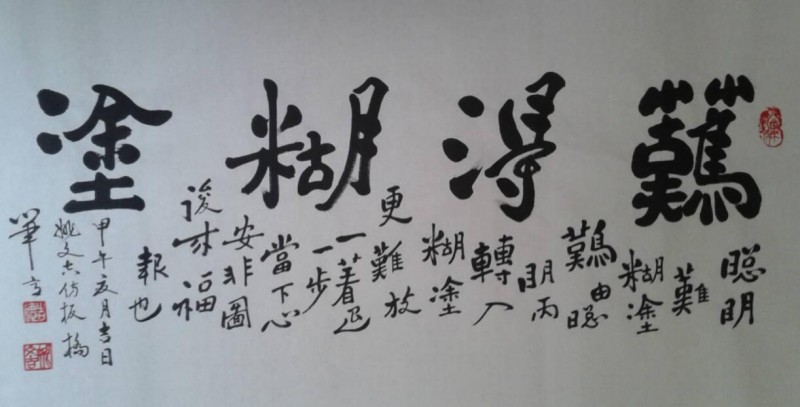 難得糊塗
聪明
難
糊塗
難由聪
明而
轉入
糊塗
更難放
一著退
一步
當下心
安非圖
後来福
報也
甲午亥月吉日
姚文仿板橋
筆意